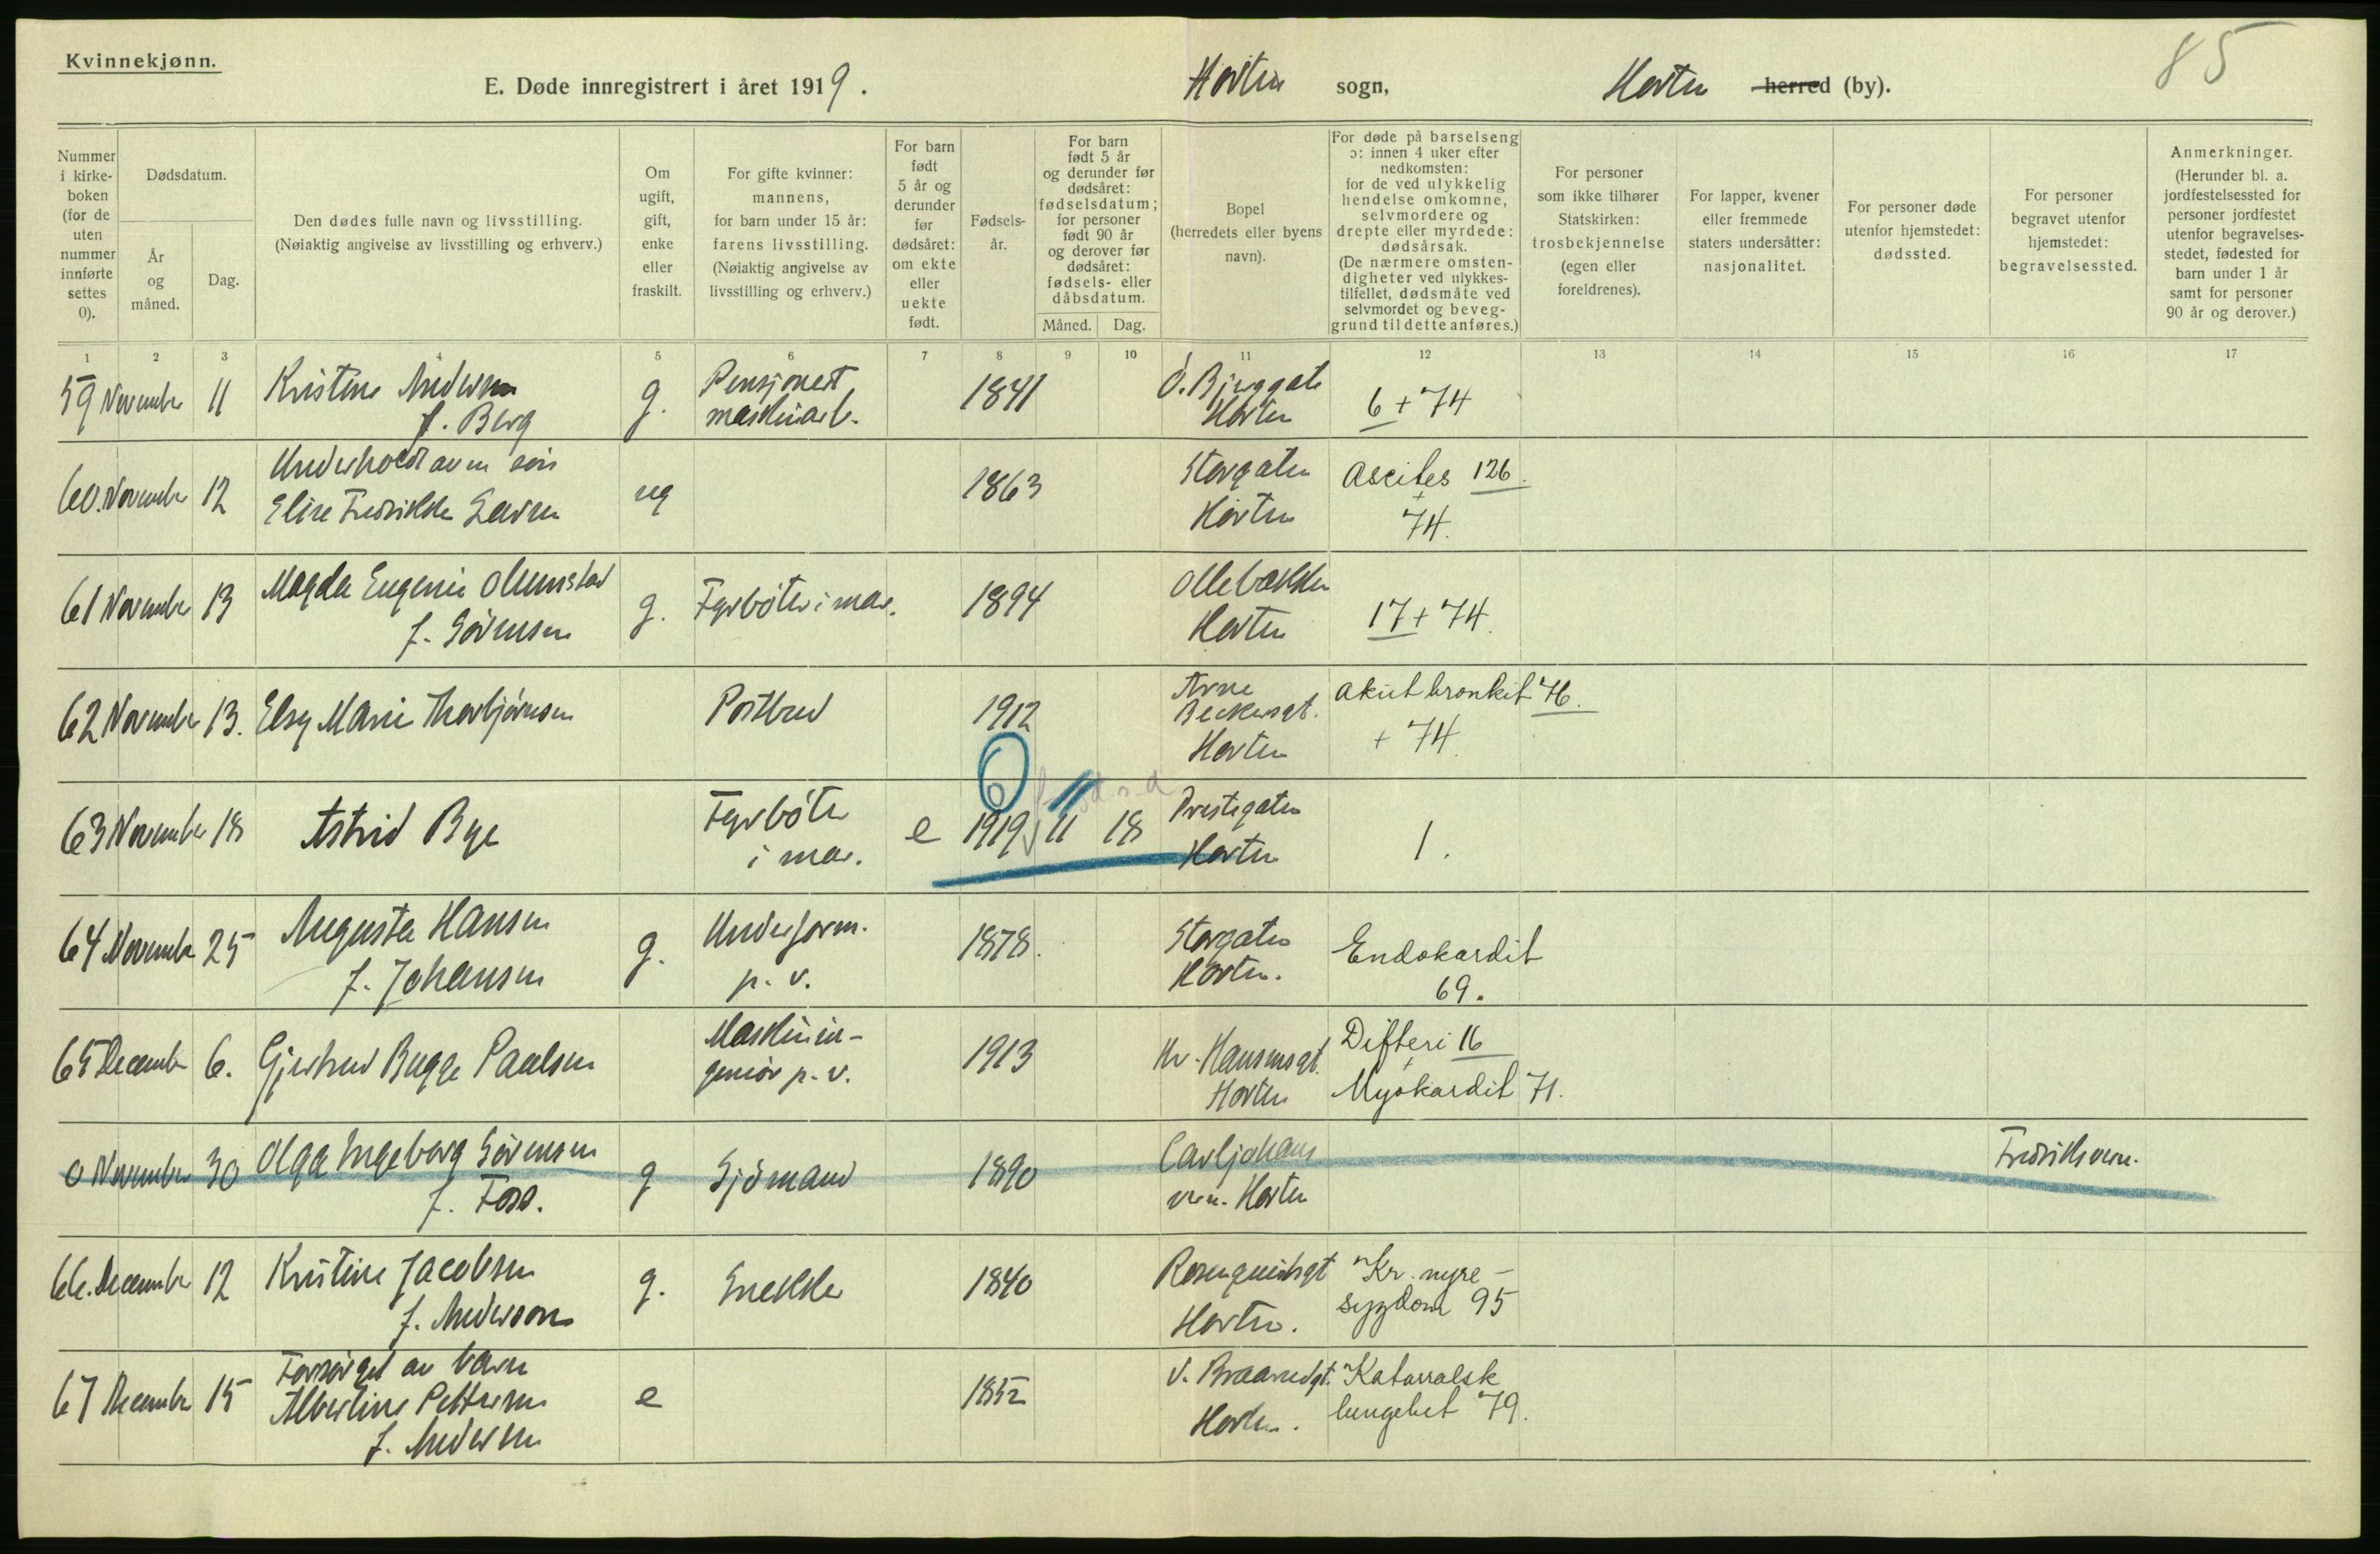 Kvinnekjønn.
85
E. Døde innregistrert i året 1919. Horten sogn, Horten herred (by).
Nummer i kirkeboken (for de uten nummer innførte settes 0).
Dødsdatum.
År og måned.
Dag.
Den dødes fulle navn og livsstilling.
(Nøiaktig angivelse av livsstilling og erhverv.)
Om ugift, gift, enke eller fraskilt.
For gifte kvinner: mannens, for barn under 15 år: farens livsstilling. (Nøiaktig angivelse av livsstilling og erhverv.)
For barn født 5 år og derunder før dødsåret: om ekte eller uekte født.
Fødselsår.
For barn født 5 år og derunder før dødsåret: fødselsdatum; for personer født 90 år og derover før dødsåret: fødsels- eller dåbsdatum.
Måned. Dag.
Bopel (herredets eller byens navn).
For døde på barselseng ɔ: innen 4 uker efter nedkomsten: for de ved ulykkelig hendelse omkomne, selvmordere og drepte eller myrdede: dødsårsak. (De nærmere omstendigheter ved ulykkestilfellet, dødsmåte ved selvmordet og beveggrund til dette anføres.)
For personer som ikke tilhører Statskirken: trosbekjennelse (egen eller foreldrenes).
For lapper, kvener eller fremmede staters undersåtter: nasjonalitet.
For personer døde utenfor hjemstedet: dødssted.
For personer begravet utenfor hjemstedet: begravelsessted.
Anmerkninger. (Herunder bl. a. jordfestelsessted for personer jordfestet utenfor begravelsesstedet, fødested for barn under 1 år samt for personer 90 år og derover.)
1 2 3 4 5 6 7 8 9 10 11 12 13 14 15 16 17
59 November 11 Kristine Andersen f. Berg g. Pensjonert maskinarb. 1841 Ø. Bjerggate Horten 6 + 74
60. November 12 Underholdt av en søn Elise Fredrikke Larsen ug 1863 Storgaten Horten Ascites 126. + 74.
61 November 13 Magda Eugenie f. Sørensen g. Fyrbøter i mar. 1894 Ollebakken Horten 17 + 74.
62 November 13. Elsy Marie Thorbjørnsen Postbud 1912 Arne Horten Akut bronkit 76. + 74.
63 November 18 Astrid Bye Fyrbøter i mar. e 1919 11 18 Prestegaten Horten 1.
64 November 25 Augusta Hansen f. Johansen g. Underform. p. v. 1878. Storgaten Horten. Endokardit 69.
65 December 6. Gjertrud Bugge Paulsen Maskiningeniør p. v. 1913 Kr. Hansensgt. Horten Difteri 16 + Myokardit 71.
0 November 30 Olga Ingeborg Sørensen f. Foss. g Sjømand 1890 Carljohans vern. Horten Fredriksvern.
66. December 12 Kristine Jacobsen f. Anderson g. Snekker 1840 Rosenquistsgt Horten. Kr. nyresygdom 95
67 December 15 Forsørget av barn Albertine Pettersen f. Andersen e 1852 V. Braarudgt. Horten. Katarralsk lungebet 79.